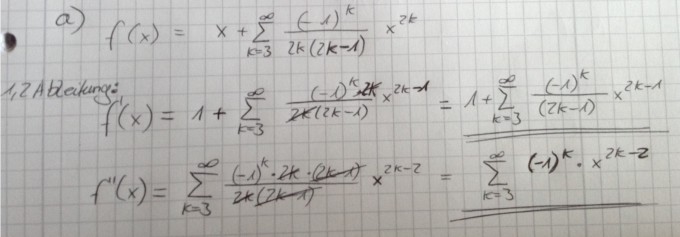 a) f(x) = x + ∑_{k=3}^{∞} \frac{(-1)^k}{2k(2k-1)} x^{2k}
1,2 Ableitung:
f'(x) = 1 + ∑_{k=3}^{∞} \frac{(-1)^k · 2k}{2k(2k-1)} x^{2k-1} = 1 + ∑_{k=3}^{∞} \frac{(-1)^k}{(2k-1)} x^{2k-1}
f''(x) = ∑_{k=3}^{∞} \frac{(-1)^k · 2k · (2k-1)}{2k(2k-1)} x^{2k-2} = ∑_{k=3}^{∞} (-1)^k · x^{2k-2}